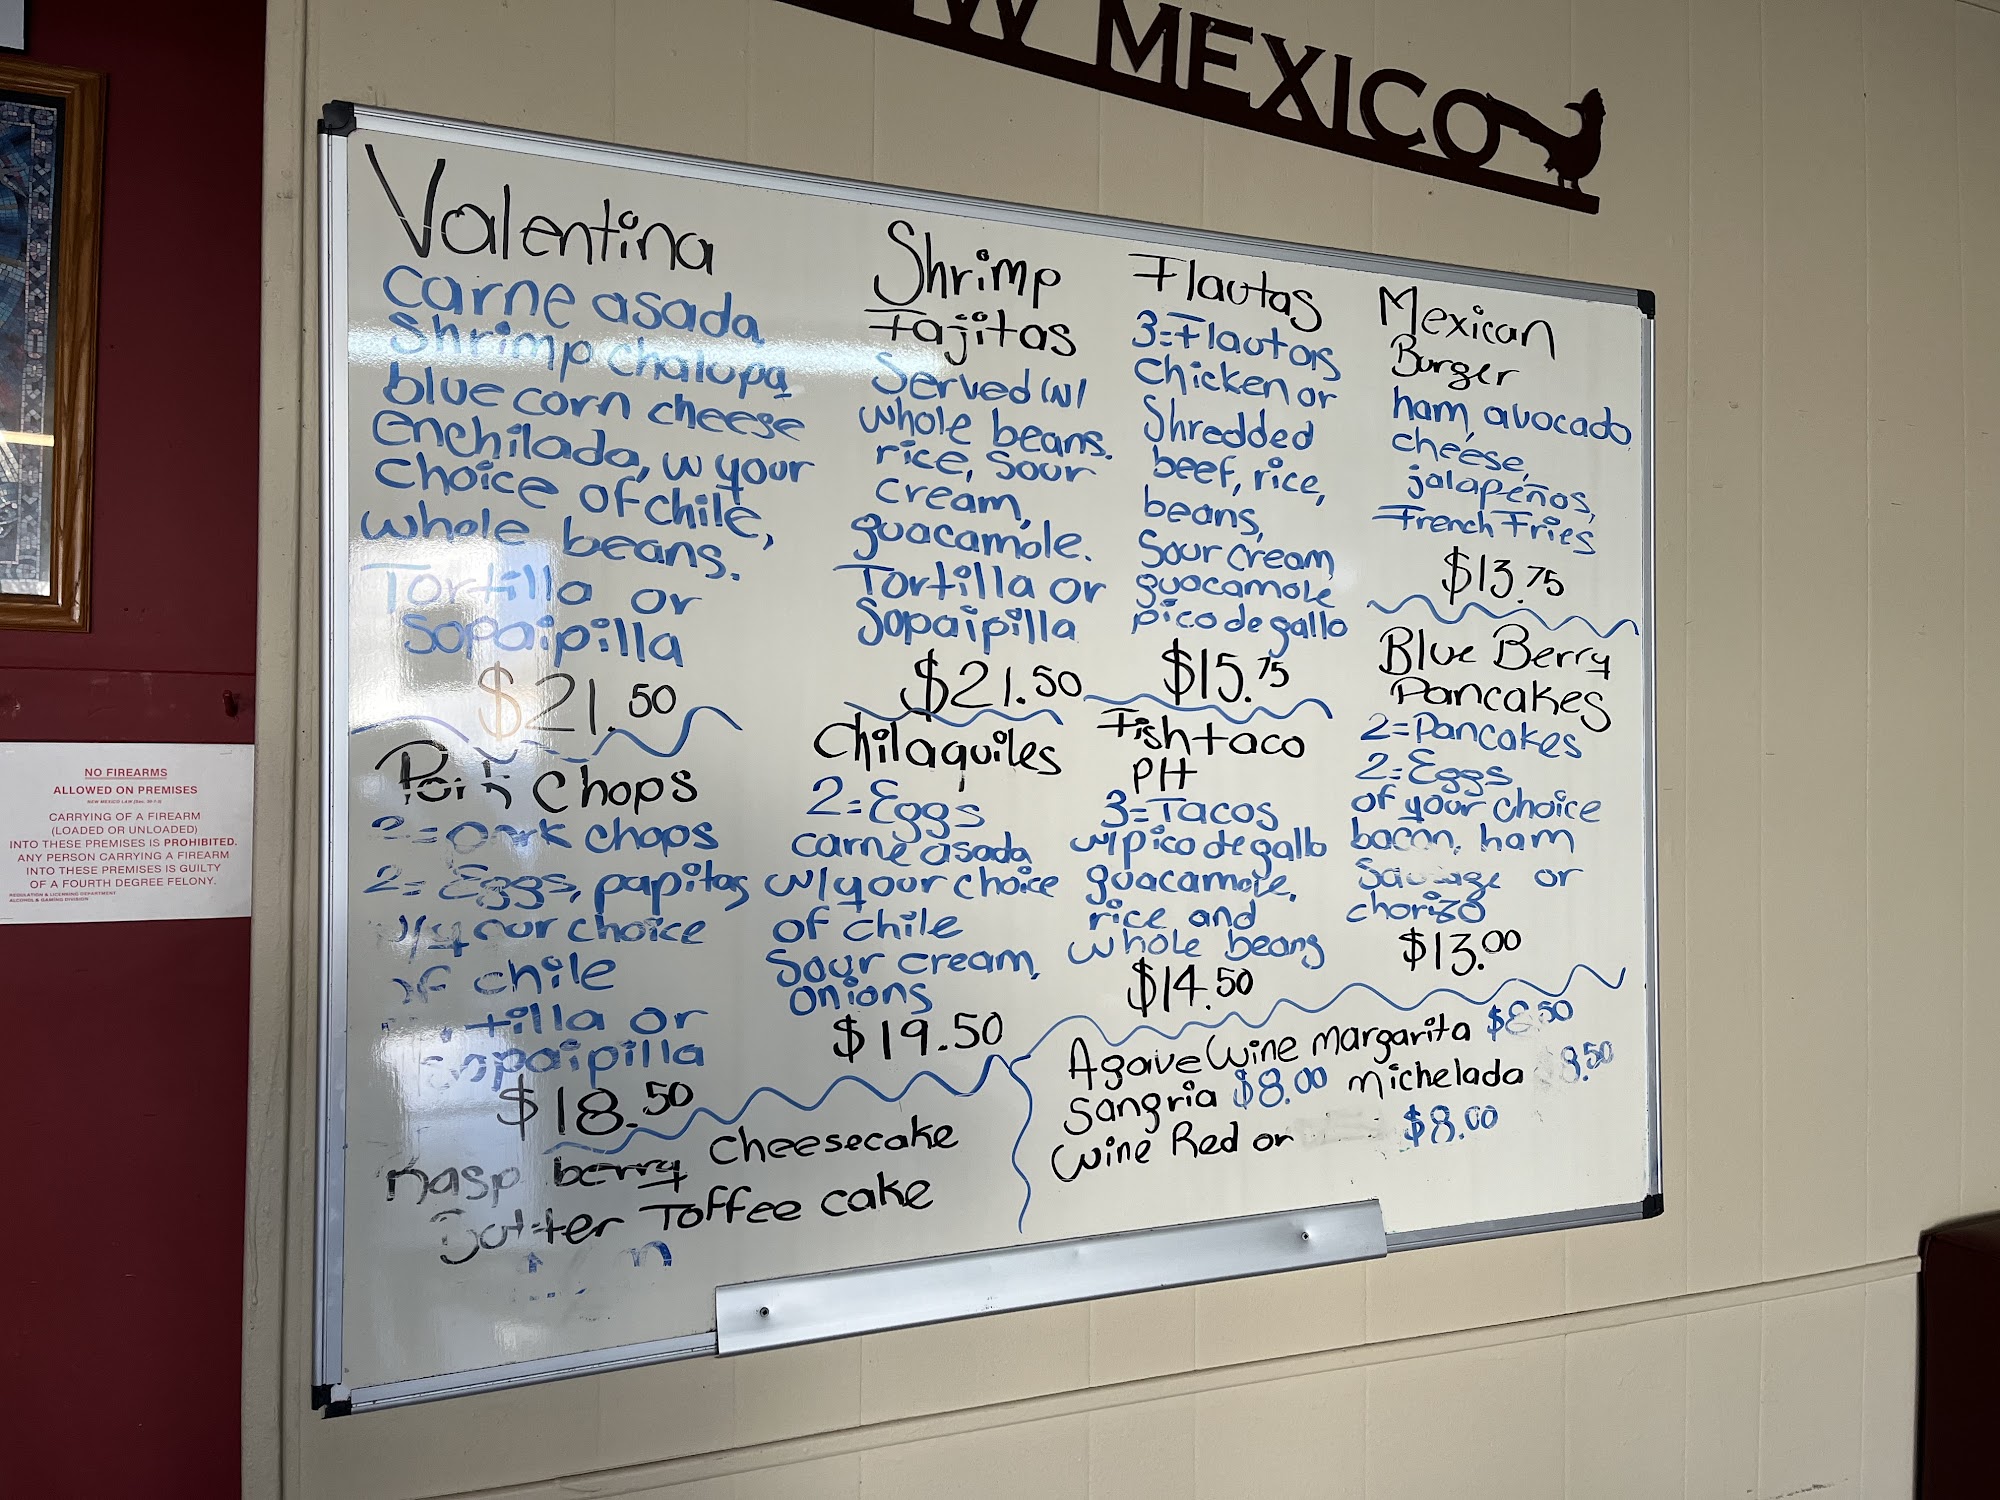 W MEXICO
Valentina
carne asada
Shrimp chalupa
blue corn cheese
enchilada, w your
choice of chile,
whole beans.
Tortilla or
Sopaipilla
$21.50
Pork Chops
2=Pork chops
2=Eggs, papitas
w/your choice
of chile
tortilla or
Sopaipilla
$18.50
Rasp berry Cheesecake
Butter Toffee cake
Shrimp
Fajitas
Served w/
whole beans.
rice, sour
cream,
guacamole.
Tortilla or
Sopaipilla
$21.50
Chilaquiles
2=Eggs
carne asada
w/your choice
of chile
Sour cream,
onions
$19.50
Flautas
3=Flautas
Chicken or
Shredded
beef, rice,
beans,
Sour cream
guacamole
pico de gallo
$15.75
Fish taco
PH
3=Tacos
w/pico de gallo
guacamole,
rice and
whole beans
$14.50
Mexican
Burger
ham, avocado,
cheese,
jalapeños,
French Fries
$13.75
Blue Berry
Pancakes
2=Pancakes
2=Eggs
of your choice
bacon, ham
Sausage or
chorizo
$13.00
Agave Wine margarita $8.50
Sangria $8.00 michelada $8.50
Wine Red or $8.00
NO FIREARMS
ALLOWED ON PREMISES
CARRYING OF A FIREARM
(LOADED OR UNLOADED)
INTO THESE PREMISES IS PROHIBITED.
ANY PERSON CARRYING A FIREARM
INTO THESE PREMISES IS GUILTY
OF A FOURTH DEGREE FELONY.
REGULATION & LICENSING DEPARTMENT
ALCOHOL & GAMING DIVISION